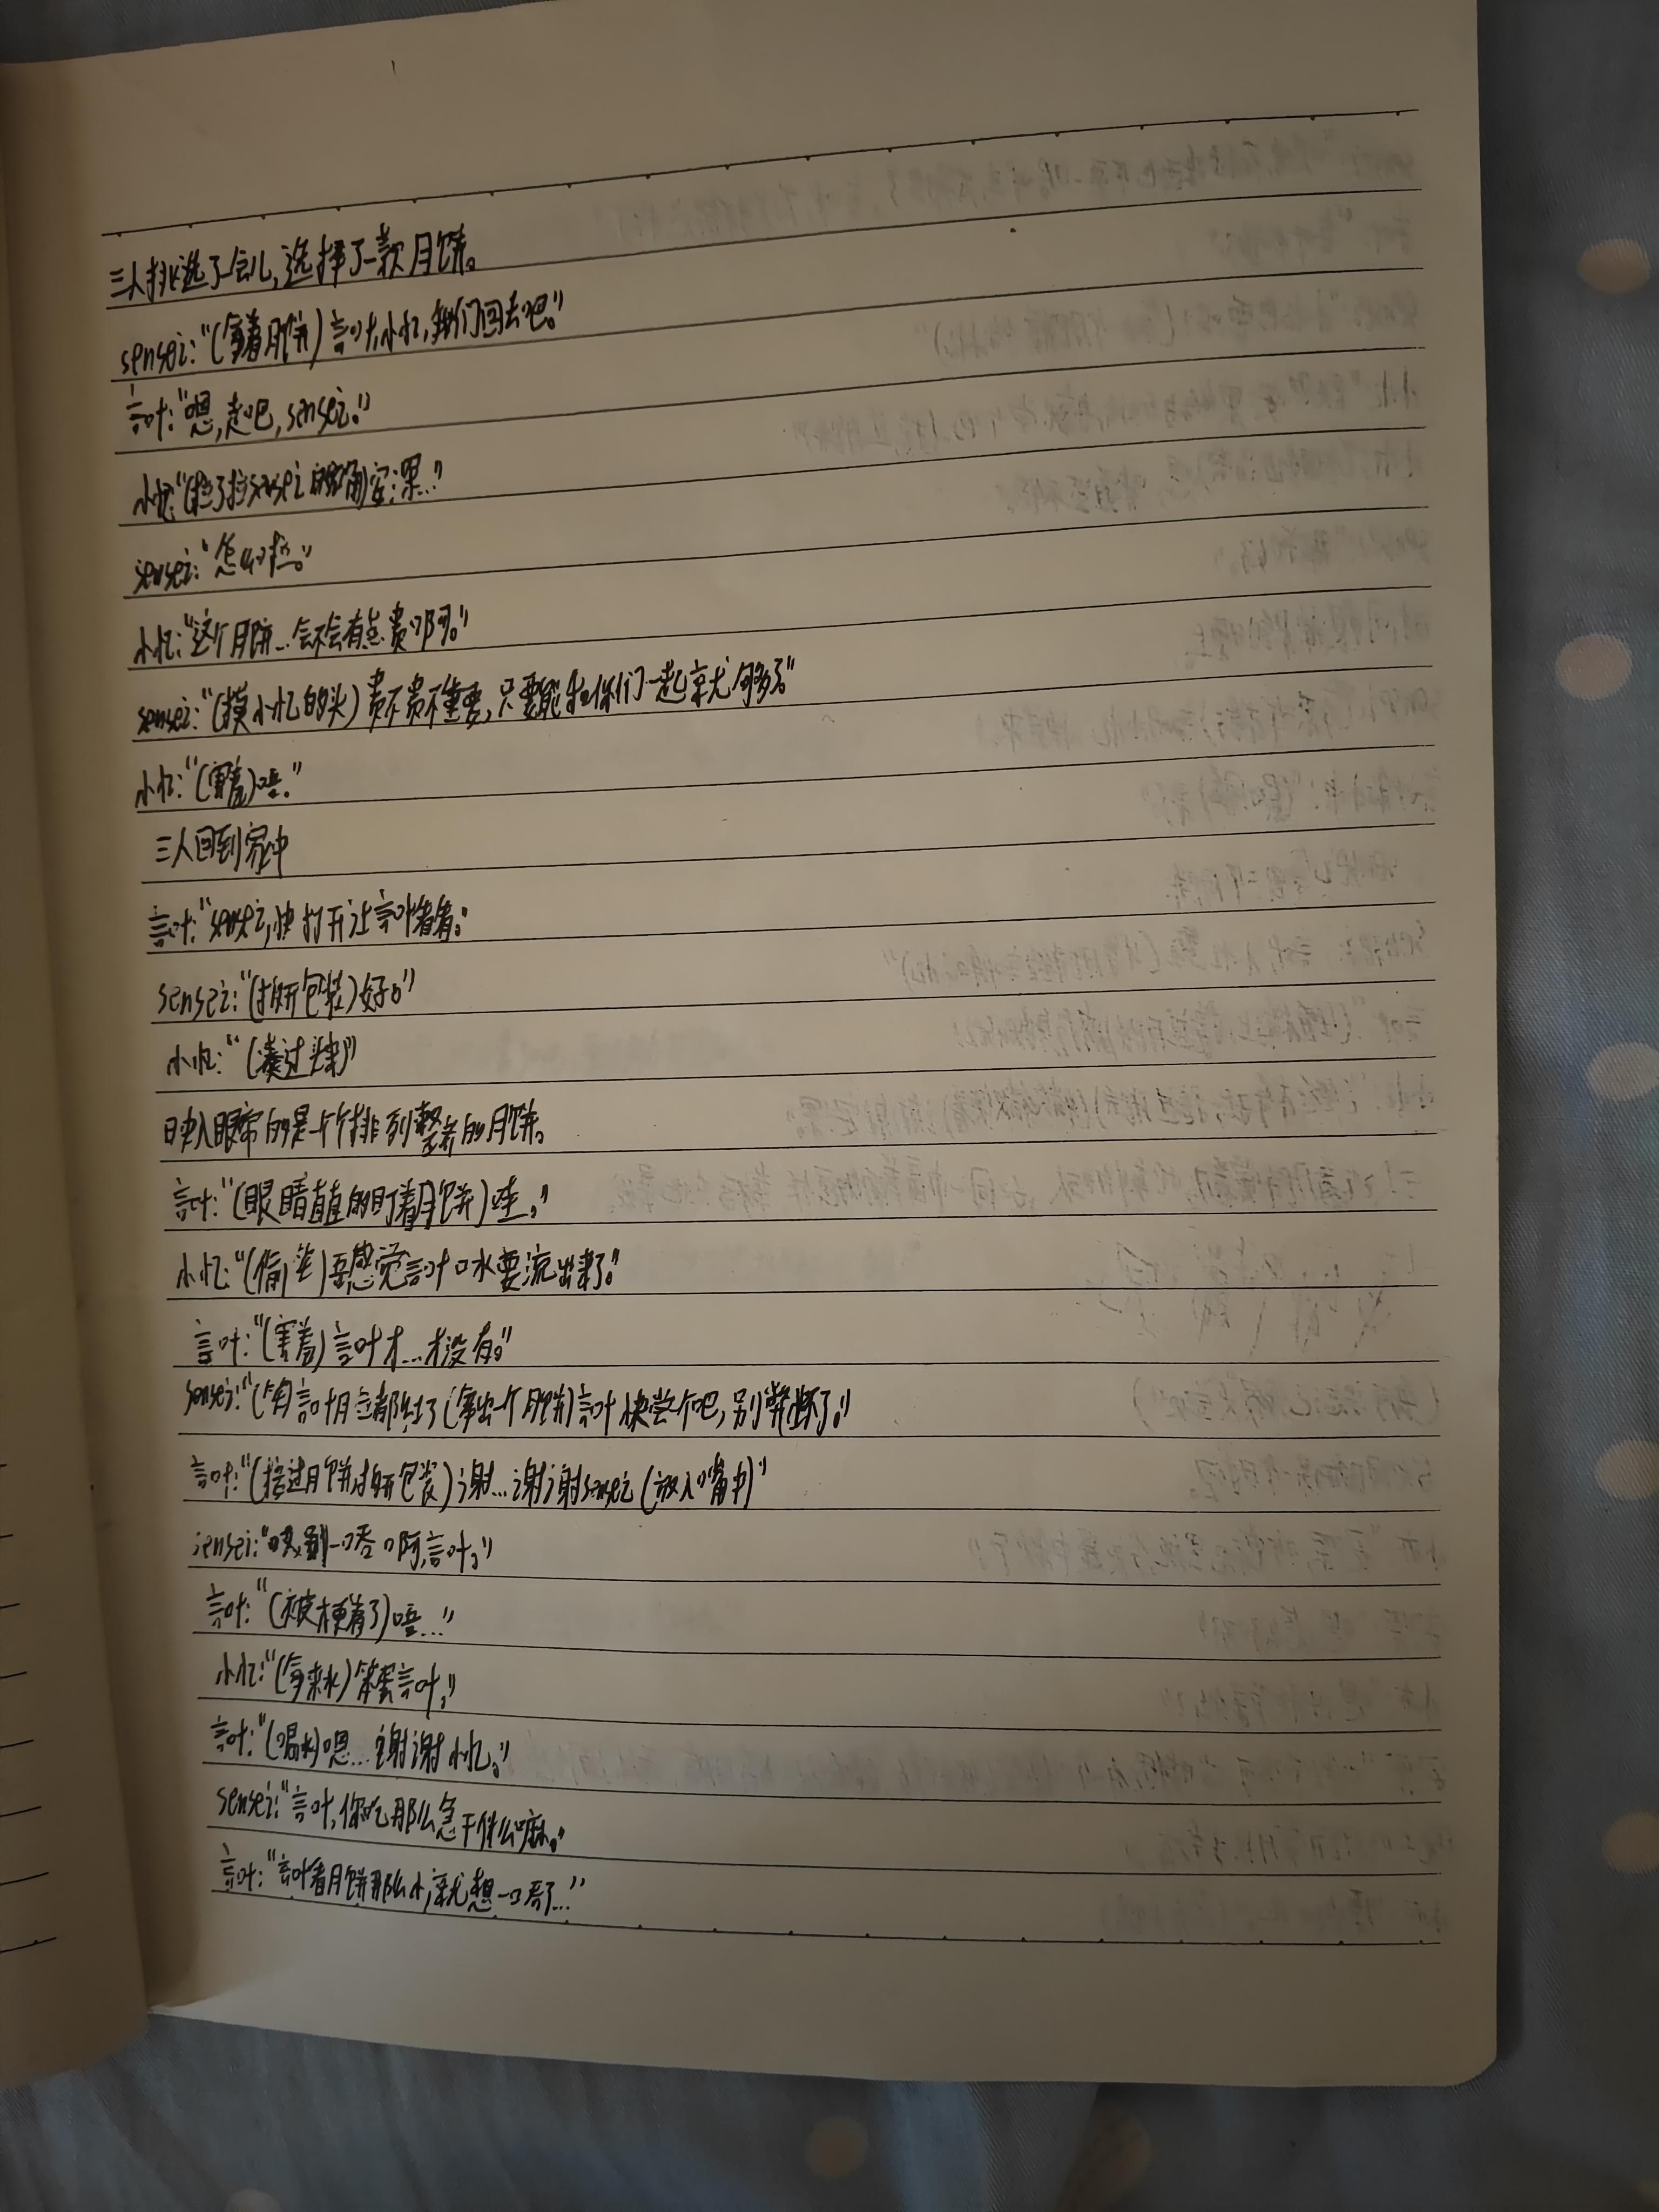 三人挑选了一会儿,选择了一款月饼。
sensei:“(拿着月饼)言叶,小忆,我们回去吧。”
言叶:“嗯,走吧,sensei。”
小忆:“(拉了拉sensei的
sensei:“怎么啦。”
小忆:“这个月饼...会不会有点贵啊。”
sensei:“(摸小忆的头)贵不贵不重要,只要能和你们一起就足够了。”
小忆:“(害羞)唔。”
三人回到家中
言叶:“sensei,快打开让言叶看看。
sensei:“(打开包装)好。”
小忆:“(凑过头来)”
映入眼帘的是一个个排列整齐的月饼。
言叶:“(眼睛直直的盯着月饼)哇。”
小忆:“(偷笑)吾感觉言叶口水要流出来了。”
言叶:“(害羞)言叶才...才没有。”
sensei:“ 言叶 都红了(拿出一个月饼)言叶快尝个吧,别憋坏了。”
言叶:“(接过月饼打开包装)谢...谢谢sensei(放入嘴中)”
sensei:“唉,别一口吞啊,言叶。”
言叶:“(被梗着了)唔...”
小忆:“(拿来水)笨蛋言叶。”
言叶:“(喝水)嗯...谢谢小忆。”
sensei:“言叶,你吃那么急干什么嘛。”
言叶:“言叶看月饼那么小,就想一口吞了...”